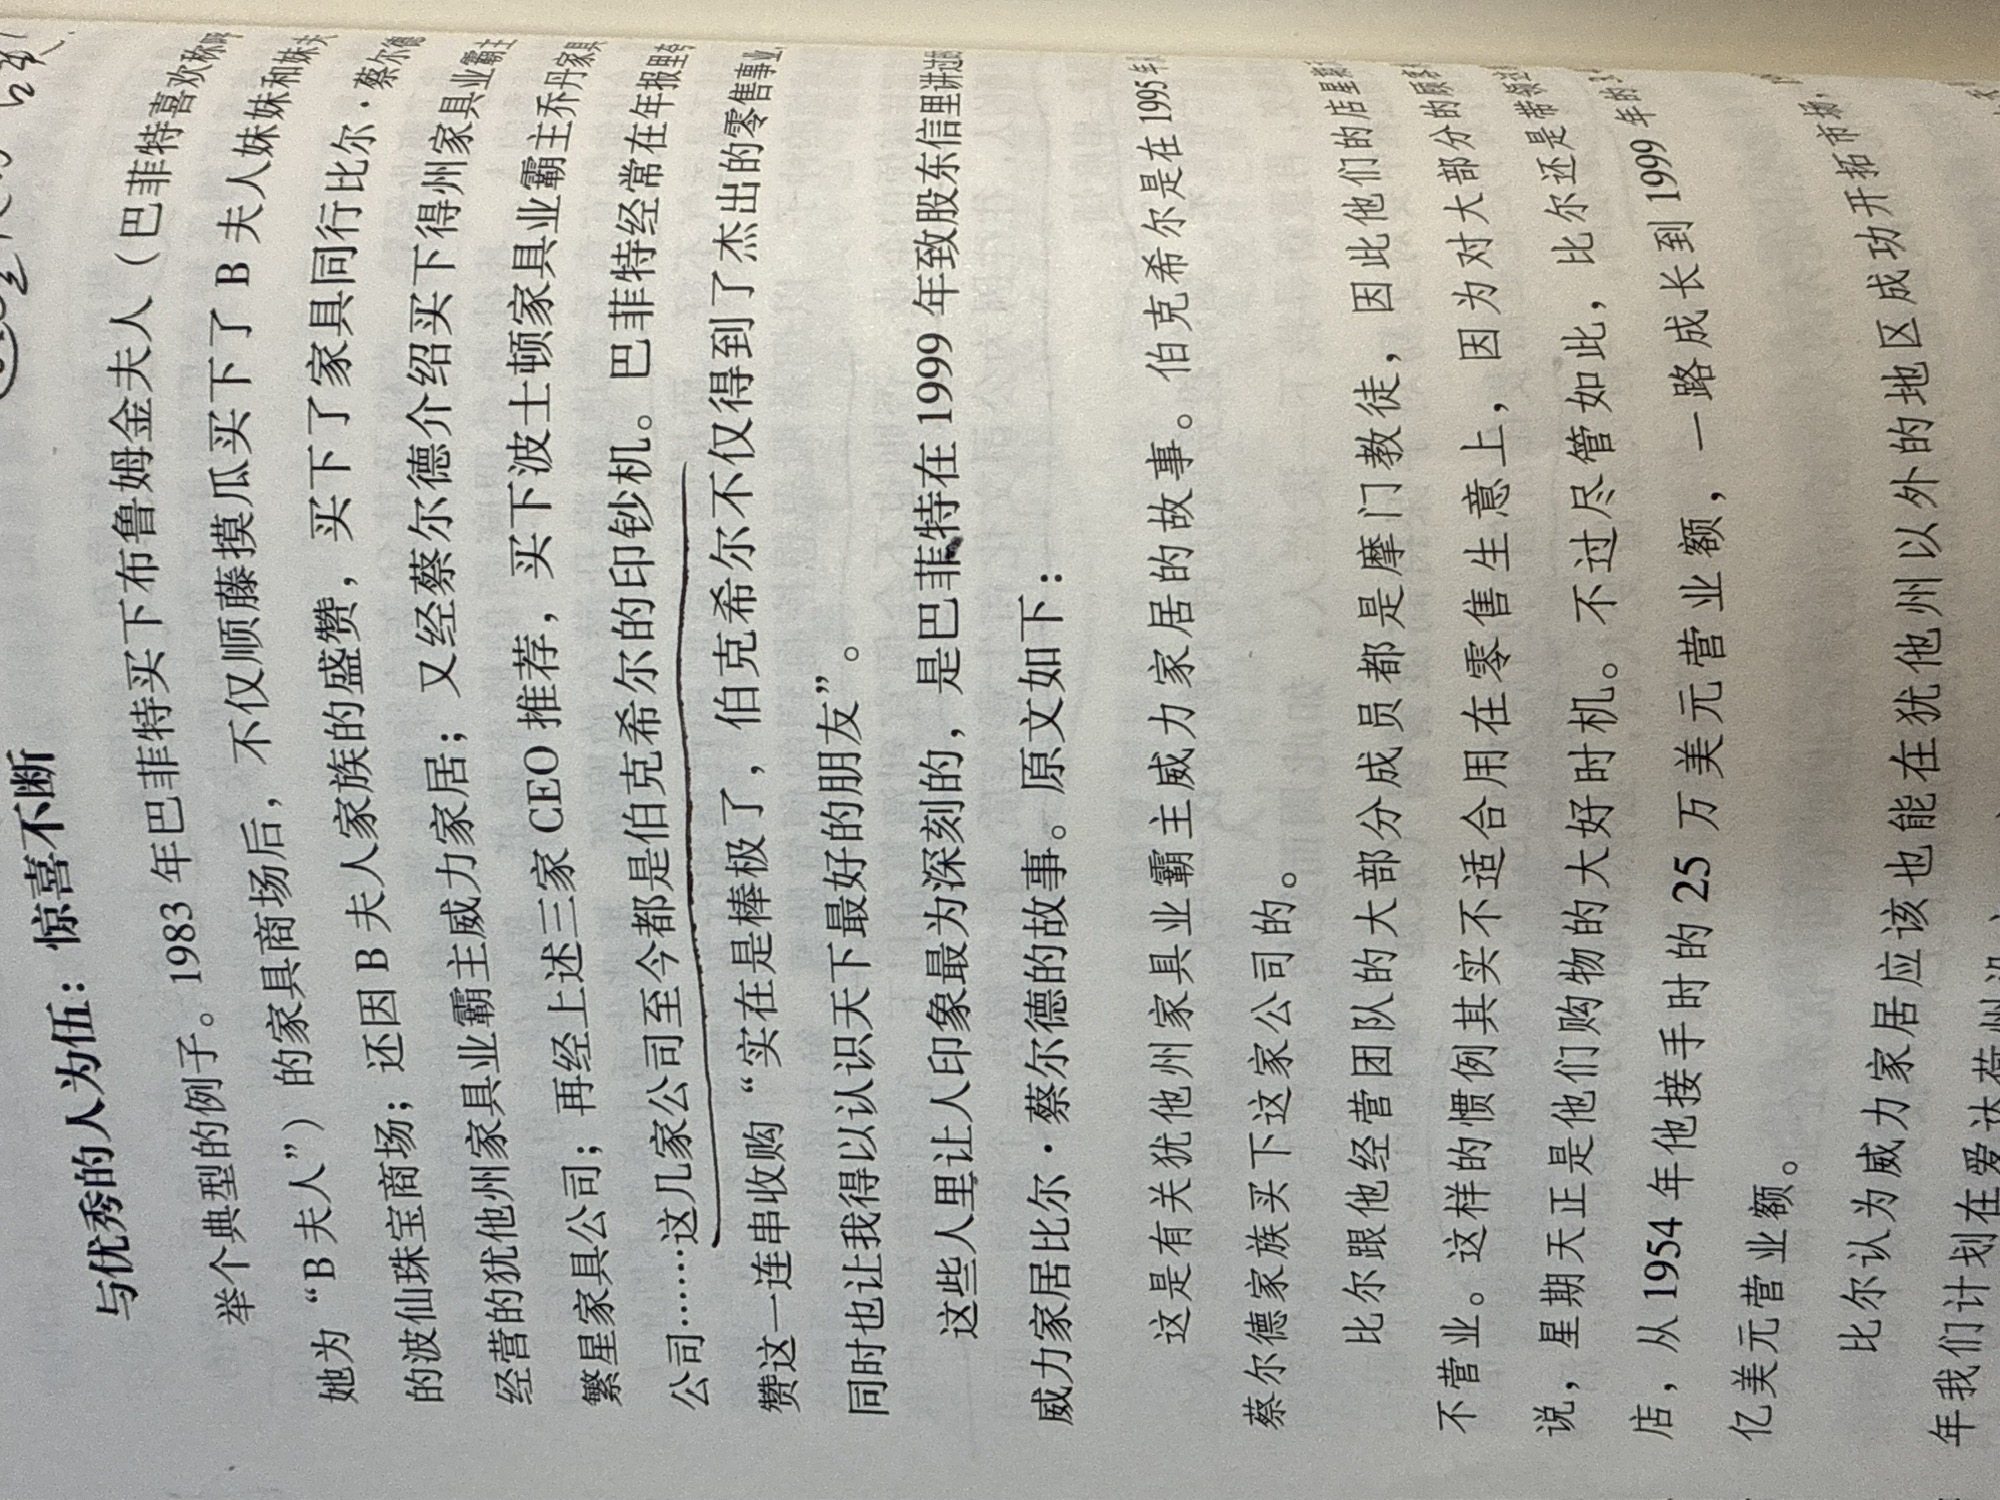 与优秀的人为伍：惊喜不断
举个典型的例子。1983 年巴菲特买下布鲁姆金夫人（巴菲特喜欢称
她为“B 夫人”）的家具商场后，不仅顺藤摸瓜买下了 B 夫人妹妹和妹夫
的波仙珠宝商场；还因 B 夫人家族的盛赞，买下了家具同行比尔·蔡尔德
经营的犹他州家具业霸主威力家居；又经蔡尔德介绍买下得州家具业霸主
繁星家具公司；再经上述三家 CEO 推荐，买下波士顿家具业霸主乔丹家具
公司……这几家公司至今都是伯克希尔的印钞机。巴菲特经常在年报里
赞这一连串收购“实在是棒极了，伯克希尔不仅得到了杰出的零售事业
同时也让我得以认识天下最好的朋友”。
这些人里让人印象最为深刻的，是巴菲特在 1999 年致股东信里讲
威力家居比尔·蔡尔德的故事。原文如下：
这是有关犹他州家具业霸主威力家居的故事。伯克希尔是在 1995 年
蔡尔德家族买下这家公司的。
比尔跟他经营团队的大部分成员都是摩门教徒，因此他们的店星
不营业。这样的惯例其实不适合用在零售生意上，因为对大部分的
说，星期天正是他们购物的大好时机。不过尽管如此，比尔还是带
店，从 1954 年他接手时的 25 万美元营业额，一路成长到 1999 年的
亿美元营业额。
比尔认为威力家居应该也能在犹他州以外的地区成功开拓市场，
年我们计划在爱达荷州设